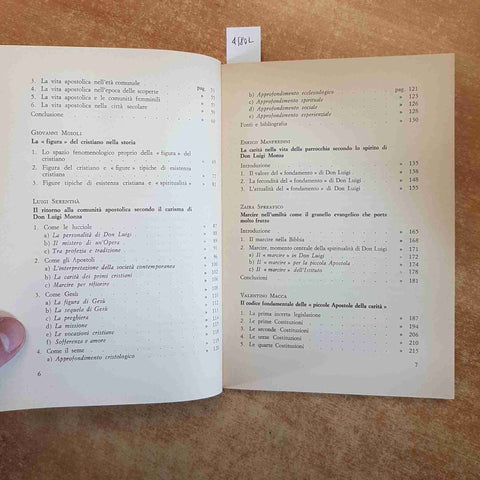 3. La vita apostolica nell'età comunale pag. 51
4. La vita apostolica nell'epoca delle scoperte » 54
5. La vita apostolica e le comunità femminili » 57
6. La vita apostolica nelle città secolare »
Conclusione » 60
GIOVANNI MOIOLI
La « figura » del cristiano nella storia
1. Lo spazio fenomenologico proprio della « figura » del cristiano »
2. Figura del cristiano e « figure » tipiche di esistenza cristiana » 77
3. Figure tipiche di esistenza cristiana e « spiritualità » » 81
LUIGI SERENTHÀ
Il ritorno alla comunità apostolica secondo il carisma di
Don Luigi Monza
1. Come le lucciole » 87
a) La personalità di Don Luigi »
b) Il mistero di un'Opera »
c) Tra profezia e tradizione »
2. Come gli Apostoli »
a) L'interpretazione della società contemporanea »
b) La carità dei primi cristiani »
c) Marcire per rifiorire »
3. Come Gesù »
a) La figura di Gesù »
b) La sequela di Gesù »
c) La preghiera »
d) La missione »
e) Le vocazioni cristiane »
f) Sofferenza e amore »
4. Come il seme »
a) Approfondimento cristologico »
6
4680L
b) Approfondimento ecclesiologico pag. 121
c) Approfondimento spirituale » 123
d) Approfondimento sociale » 126
e) Approfondimento esperienziale » 128
Fonti e bibliografia » 130
ENRICO MANFREDINI
La carità nella vita della parrocchia secondo lo spirito di
Don Luigi Monza
Introduzione » 135
1. Il valore del « fondamento » di Don Luigi » 138
2. La fecondità del « fondamento » di Don Luigi » 148
3. L'attualità del « fondamento » di Don Luigi » 155
ZAIRA SPREAFICO
Marcire nell'umiltà come il granello evangelico che porta
molto frutto
Introduzione » 165
1. Il marcire nella Bibbia » 168
2. Marcire, momento centrale della spiritualità di Don Luigi » 171
a) Il « marcire » in Don Luigi » 171
b) Il « marcire » per la piccola Apostola » 174
c) Il « marcire » dell'Istituto »
Conclusioni » 181
VALENTINO MACCA
Il codice fondamentale delle « piccole Apostole della carità »
1. La prima incerta legislazione » 187
2. Le prime Costituzioni » 194
3. Le seconde Costituzioni » 206
4. Le terze Costituzioni » 210
5. Le quarte Costituzioni » 215
7